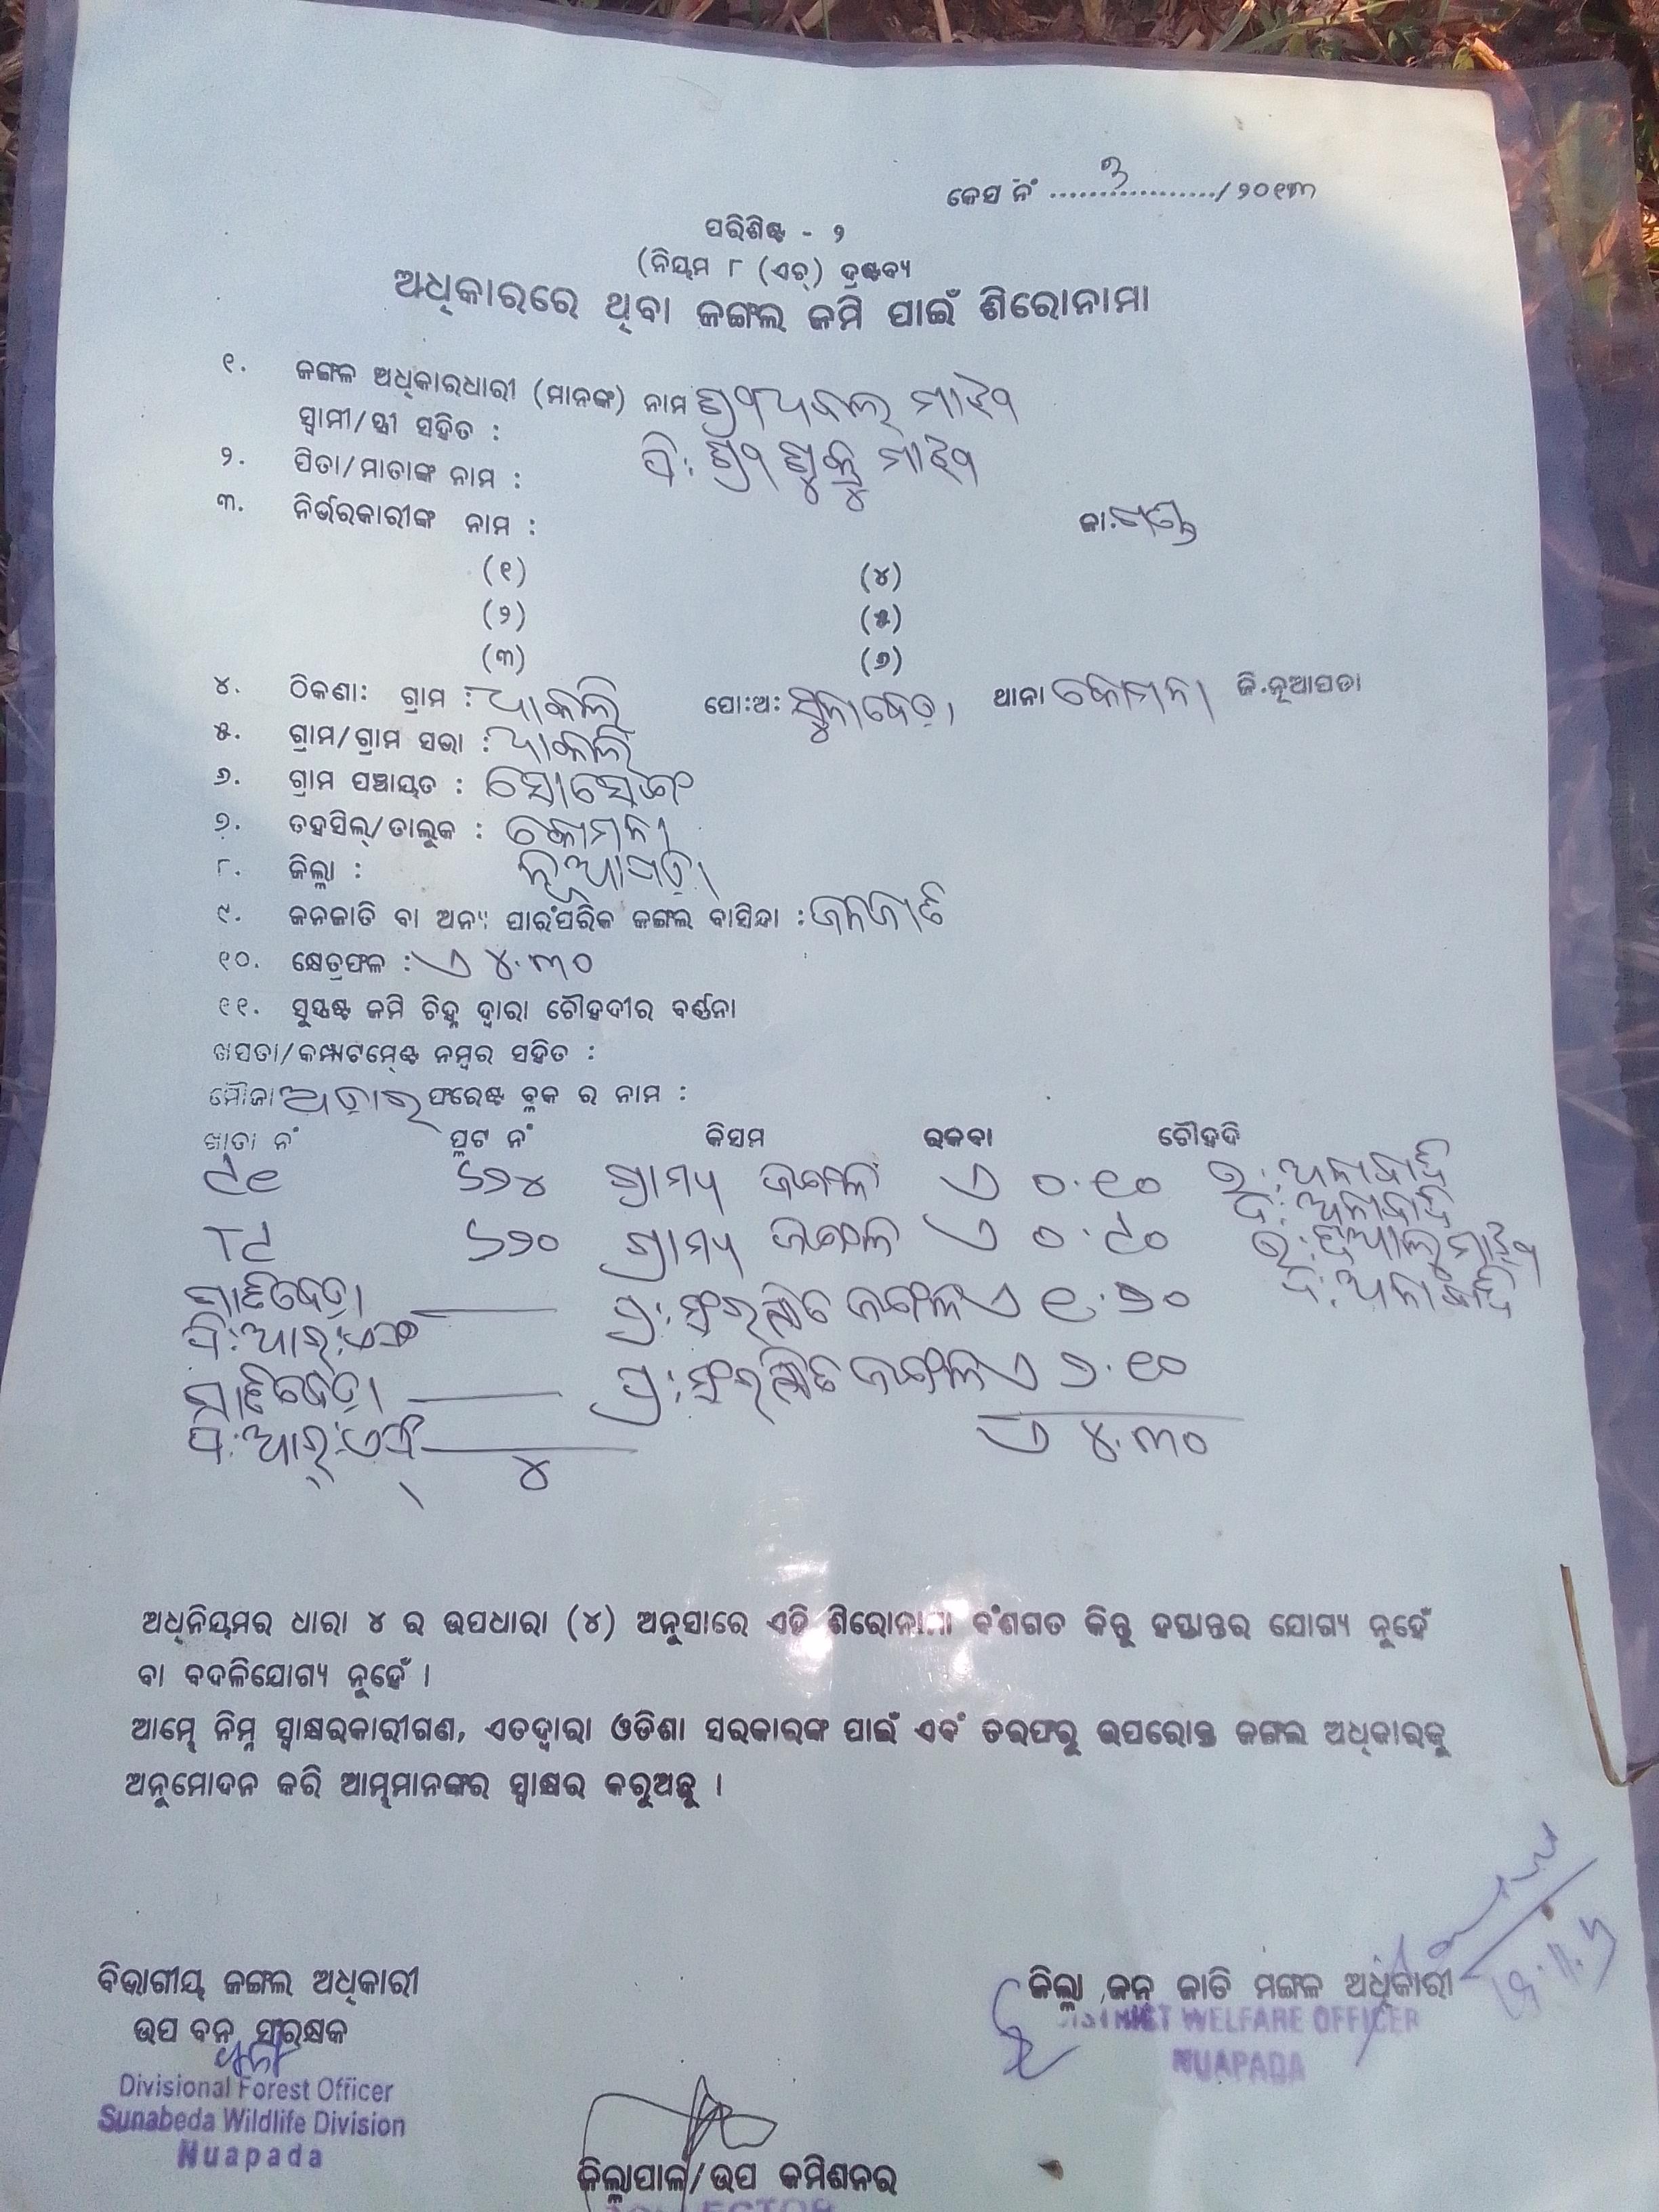 କେସ ନଂ ................./ ୨୦୧୩
ପରିଶିଷ୍ଟ - ୨
(ନିୟମ ୮ (ଏଚ୍) ଦ୍ରଷ୍ଟବ୍ୟ
ଅଧିକାରରେ ଥିବା ଜଙ୍ଗଲ ଜମି ପାଇଁ ଶିରୋନାମା
୧. ଜଙ୍ଗଳ ଅଧିକାରଧାରୀ (ମାନଙ୍କ) ନାମ ମାଝୀ
ସ୍ୱାମୀ/ସ୍ତ୍ରୀ ସହିତ :
୨. ପିତା/ମାତାଙ୍କ ନାମ : ପି: ଶ୍ରୀ ଶୁକ୍ରୁ ମାଝୀ
୩. ନିର୍ଭରକାରୀଙ୍କ ନାମ : ଜା:
(୧) (୪)
(୨) (୫)
(୩) (୬)
୪. ଠିକଣା: ଗ୍ରାମ : ପୋ:ଅ: ସୁନାବେଡ଼ା ଥାନା କୋମନା ଜି.ନୂଆପଡା
୫. ଗ୍ରାମ/ଗ୍ରାମ ସଭା :
୬. ଗ୍ରାମ ପଞ୍ଚାୟତ : ସୋସେଙ୍ଗ
୭. ତହସିଲ୍/ତାଲୁକ : କୋମନା
୮. ଜିଲ୍ଲା : ନୂଆପଡ଼ା
୯. ଜନଜାତି ବା ଅନ୍ୟ ପାରଂପରିକ ଜଙ୍ଗଲ ବାସିନ୍ଦା : ଜନଜାତି
୧୦. କ୍ଷେତ୍ରଫଳ : ଏ ୪.୩୦
୧୧. ସୁସ୍ପଷ୍ଟ ଜମି ଚିହ୍ନ ଦ୍ୱାରା ଚୌହଦୀର ବର୍ଣ୍ଣନା
ଖସଡା/କମ୍ପାଟମେଣ୍ଟ ନମ୍ବର ସହିତ :
ମୌଜା ଫରେଷ୍ଟ ବ୍ଲକ ର ନାମ :
ଖାତା ନଂ ପ୍ଲଟ ନଂ କିସମ ରକବା ଚୌହଦି
ଗ୍ରାମ୍ୟ ଜଙ୍ଗଲ ଏ ୦.୧୦ ଉ: ଅନାବାଦି
ଦ: ଅନାବାଦି
ଗ୍ରାମ୍ୟ ଜଙ୍ଗଲ ଏ ୦.୯୦ ମାଝୀ
ଦ: ଅନାବାଦି
ପ୍ର: ସଂରକ୍ଷିତ ଜଙ୍ଗଲ ଏ ୧.୨୦
ପି:ଆର୍:ଏଫ୍
ପ୍ର: ସଂରକ୍ଷିତ ଜଙ୍ଗଲ ଏ ୨.୧୦
ପି:ଆର୍:ଏଫ୍ ୪ ଏ ୪.୩୦
ଅଧିନିୟମର ଧାରା ୪ ର ଉପଧାରା (୪) ଅନୁସାରେ ଏହି ଶିରୋନାମା ବଂଶଗତ କିନ୍ତୁ ହସ୍ତାନ୍ତର ଯୋଗ୍ୟ ନୁହେଁ
ବା ବଦଳିଯୋଗ୍ୟ ନୁହେଁ ।
ଆମ୍ଭେ ନିମ୍ନ ସ୍ୱାକ୍ଷରକାରୀଗଣ, ଏତଦ୍ୱାରା ଓଡିଶା ସରକାରଙ୍କ ପାଇଁ ଏବଂ ତରଫରୁ ଉପରୋକ୍ତ ଜଙ୍ଗଲ ଅଧିକାରକୁ
ଅନୁମୋଦନ କରି ଆମ୍ଭମାନଙ୍କର ସ୍ୱାକ୍ଷର କରୁଅଛୁ ।
ବିଭାଗୀୟ ଜଙ୍ଗଲ ଅଧିକାରୀ
ଉପ ବନ ସଂରକ୍ଷକ
Divisional Forest Officer
Sunabeda Wildlife Division
Nuapada
ଜିଲ୍ଲା ଜନ ଜାତି ମଙ୍ଗଳ ଅଧିକାରୀ
DISTRICT WELFARE OFFICER
NUAPADA
ଜିଲ୍ଲାପାଳ/ଉପ କମିଶନର